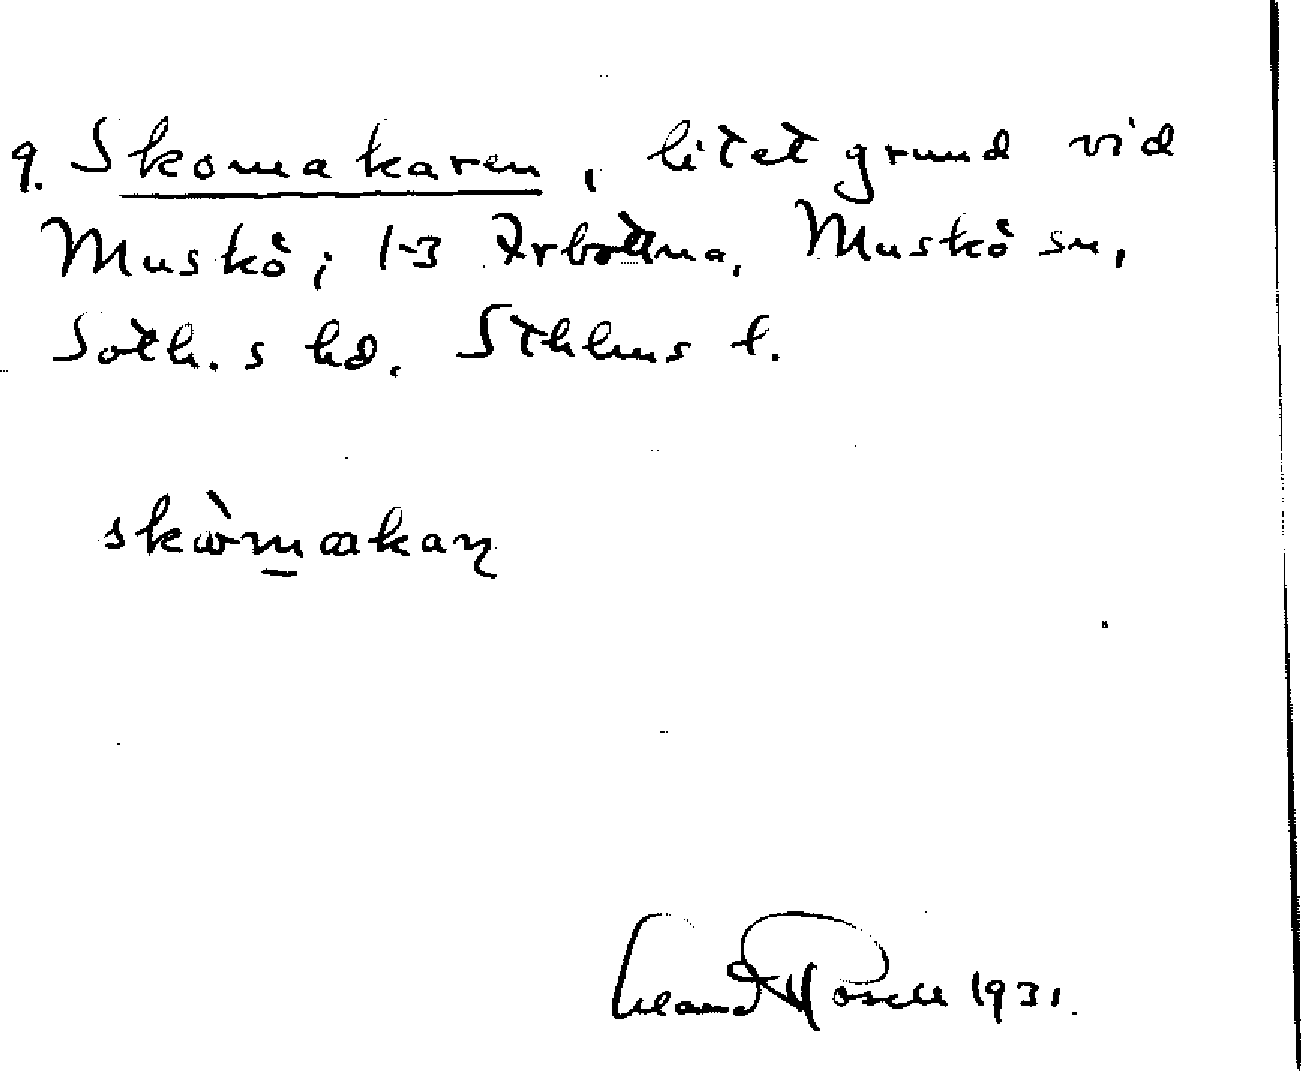 9. Skomakaren, litet grund vid
Muskö; 1-3 Arbottna, Muskö sn,
Soth. s hd. Sthlms l.
skòmakaɳ
Erland Rosell 1931.